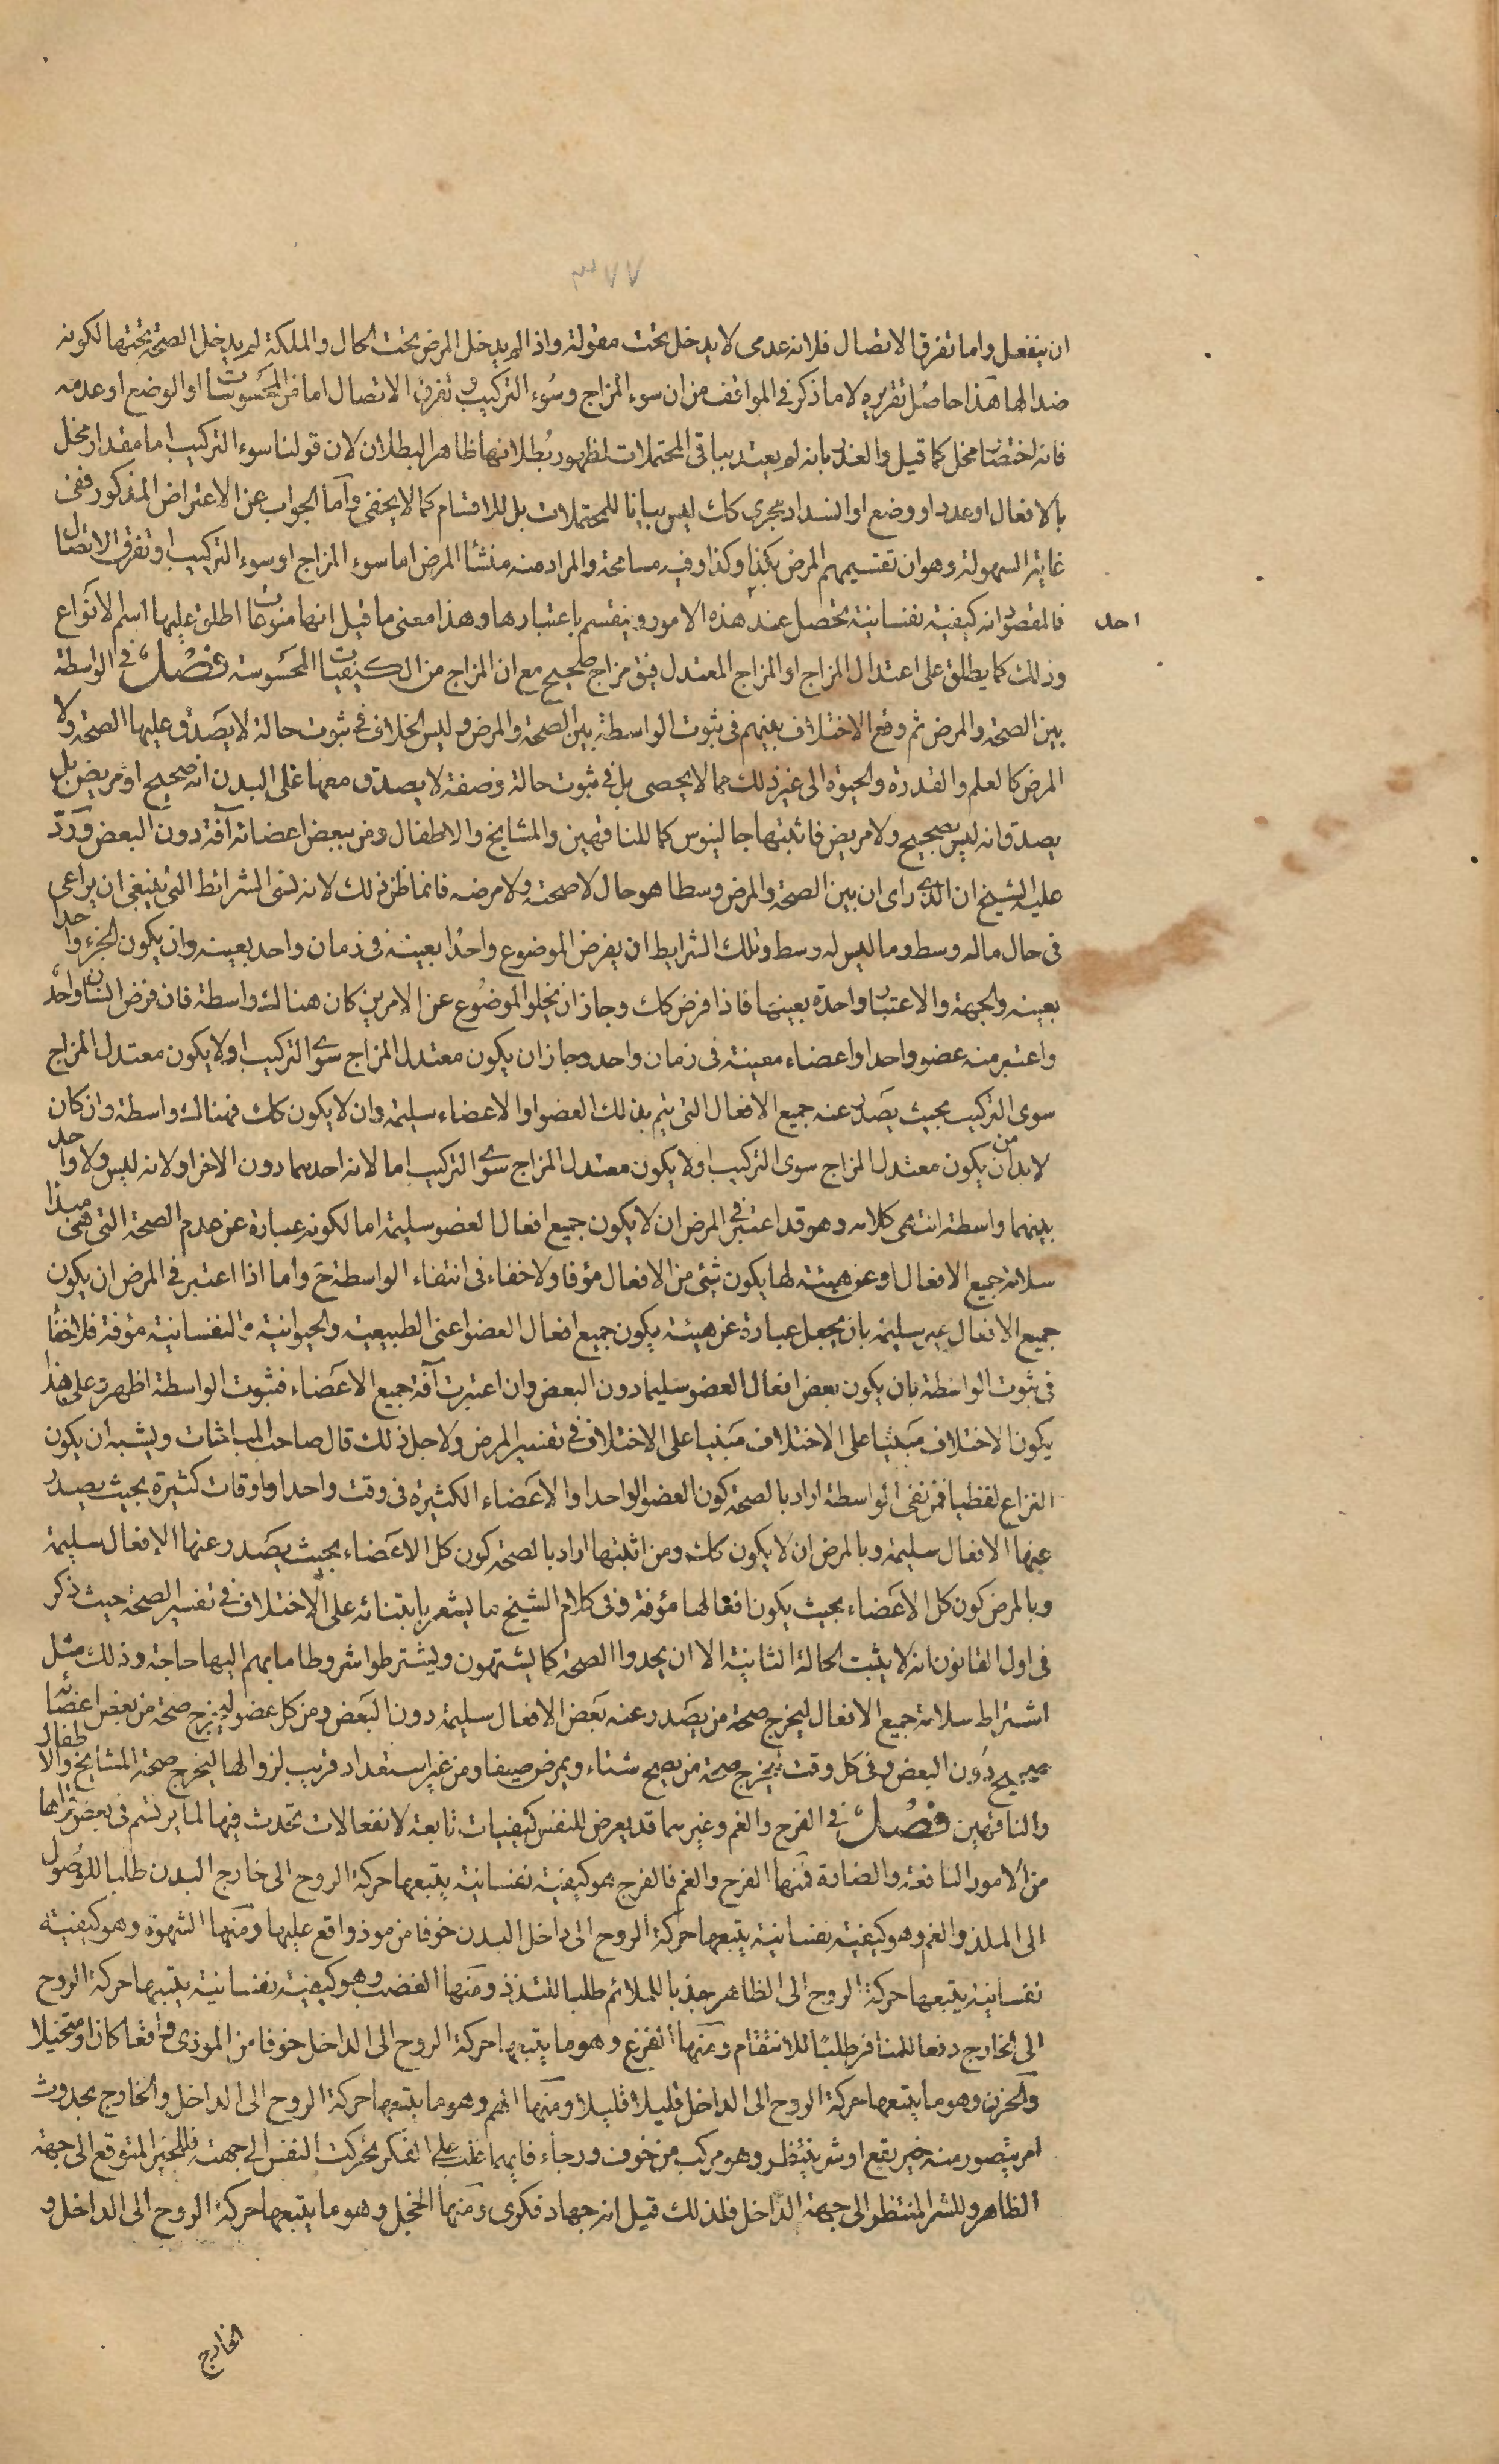 ٣٧٧
ان ينفعل واما تفرق الاتصال فلانه عدمى لا يدخل تحت مقولة واذا لم يدخل المرض تحت الحال والملكة لم يدخل الصحة تحتها لكونه
ضدا لها هذا حاصل تقريره لا ما ذكر فى المواقف من ان سوء المزاج وسوء التركيب وتفرق الاتصال اما من المحسوسات او الوضع او عدمه
فانه اختصار مخل كما قيل والعذر بانه لم يعتد بباقى المحتملات لظهور بطلانها ظاهر البطلان لان قولنا سوء التركيب اما مقدار مخل
بالافعال او عدد او وضع او انسداد مجرى كك ليس بيانا للمحتملات بل للاقسام كما لا يخفى واما الجواب عن الاعتراض المذكور ففى
غاية السهولة وهو ان تقسيمهم المرض بكذا وكذا وفيه مسامحة والمراد منه منشأ المرض اما سوء المزاج او سوء التركيب او تفرق الاتصال
فالمقصود انه كيفية نفسانية تحصل عند هذه الامور وينقسم باعتبارها وهذا معنى ما قيل انها منوعات اطلق عليها اسم الانواع
احد
وذلك كما يطلق على اعتدال المزاج او المزاج المعتدل فيق مزاج صحيح مع ان المزاج من الكيفيات المحسوسة فصل فى الواسطة
بين الصحة والمرض ثم وقع الاختلاف بينهم فى ثبوت الواسطة بين الصحة والمرض وليس الخلاف فى ثبوت حالة لا يصدق عليها الصحة ولا
المرض كالعلم والقدرة والحيوة الى غير ذلك مما لا يحصى بل فى ثبوت حالة وصفة لا يصدق معها على البدن انه صحيح او مريض بل
يصدق انه ليس بصحيح ولا مريض فاثبتها جالينوس كما للناقهين والمشايخ والاطفال ومن ببعض اعضائه آفة دون البعض ورد
عليه الشيخ ان الذى راى ان بين الصحة والمرض وسطا هو حال لا صحة ولا مرضه فانما ظن ذلك لانه نسى الشرائط التى ينبغى ان يراعى
فى حال ماله وسط وما ليس له وسط وتلك الشرايط ان يفرض الموضوع واحدا بعينه فى زمان واحد بعينه وان يكون الجزء واحدا
بعينه والجهة والاعتبار واحدة بعينها فاذا فرض كك وجاز ان يخلو الموضوع عن الامرين كان هناك واسطة فان فرض انسان واحد
واعتبر منه عضو واحد او اعضاء معينة فى زمان واحد وجاز ان يكون معتدل المزاج سوى التركيب او لا يكون معتدل المزاج
سوى التركيب بحيث يصدر عنه جميع الافعال التى يتم بذلك العضو او الاعضاء سليمة وان لا يكون كك فهناك واسطة وان كان
لا بد من ان يكون معتدل المزاج سوى التركيب او لا يكون معتدل المزاج سوى التركيب اما لانه احدهما دون الاخر او لانه ليس ولا واحد
بينهما واسطة انتهى كلامه وهو قد اعتبر فى المرض ان لا يكون جميع افعال العضو سليمة اما لكونه عبارة عن عدم الصحة التى هى مبدأ
سلامة جميع الافعال او عن هيئة لها يكون شئ من الافعال مؤفا ولا خفاء فى انتفاء الواسطة ح واما اذا اعتبر فى المرض ان يكون
جميع الافعال غير سليمة بان يجعل عبارة عن هيئة يكون جميع افعال العضو اعنى الطبيعية والحيوانية والنفسانية مؤفة فلا خفأ
فى ثبوت الواسطة بان يكون بعض افعال العضو سليما دون البعض وان اعتبرت آفة جميع الاعضاء فثبوت الواسطة اظهر وعلى هذا
يكون الاختلاف مبتنيا على الاختلاف مبنيا على الاختلاف فى تفسير المرض ولاجل ذلك قال صاحب المباحثات ويشبه ان يكون
النزاع لفظيا فمن نفى الواسطة اراد بالصحة كون العضو الواحد او الاعضاء الكثيرة فى وقت واحد او اوقات كثيرة بحيث يصدر
عنها الافعال سليمة وبالمرض ان لا يكون كك ومن اثبتها اراد بالصحة كون كل الاعضاء بحيث يصدر عنها الافعال سليمة
وبالمرض كون كل الاعضاء بحيث يكون افعالها مؤفة وفى كلام الشيخ ما يشعر بابتنائه على الاختلاف فى تفسير الصحة حيث ذكر
فى اول القانون انه لا يثبت الحالة الثانية الا ان يحدوا الصحة كما يشتهون ويشترطوا شروطا ما بهم اليها حاجة وذلك مثل
اشتراط سلامة جميع الافعال ليخرج صحة من يصدر عنه بعض الافعال سليمة دون البعض ومن كل عضو ليخرج صحة من بعض اعضائه
صحيح دون البعض وفى كل وقت ليخرج صحة من يصح شتاء ويمرض صيفا ومن غير استعداد قريب لزوالها ليخرج صحة المشايخ والاطفال
والناقهين فصل فى الفرح والغم وغيرهما قد يعرض للنفس كيفيات تابعة لانفعالات تحدث فيها لما يرتسم فى بعض قواها
من الامور النافعة والضارة فمنها الفرح والغم فالفرح هو كيفية نفسانية يتبعها حركة الروح الى خارج البدن طلبا للوصول
الى الملذ والغم وهو كيفية نفسانية يتبعها حركة الروح الى داخل البدن خوفا من موذ واقع عليها ومنها الشهوة وهو كيفية
نفسانية يتبعها حركة الروح الى الظاهر جذبا للملائم طلبا للتلذذ ومنها الغضب وهو كيفية نفسانية يتبعها حركة الروح
الى الخارج دفعا للمنافر طلبا للانتقام ومنها الفزع وهو ما يتبعها حركة الروح الى الداخل خوفا من الموذى واقعا كان او متخيلا
والحزن وهو ما يتبعها حركة الروح الى الداخل قليلا قليلا ومنها الهم وهو ما يتبعها حركة الروح الى الداخل والخارج بحدوث
امر يتصور منه خير يقع او شر ينتظر وهو مركب من خوف ورجاء فايهما غلب على الفكر تحركت النفس الى جهته فللخير المتوقع الى جهة
الظاهر وللشر المنتظر الى جهة الداخل فلذلك قيل انه جهاد فكرى ومنها الخجل وهو ما يتبعها حركة الروح الى الداخل و
الخارج